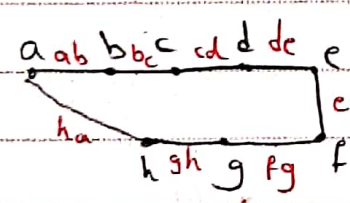 a ab b bc c cd d de e
e
ha h gh g fg f